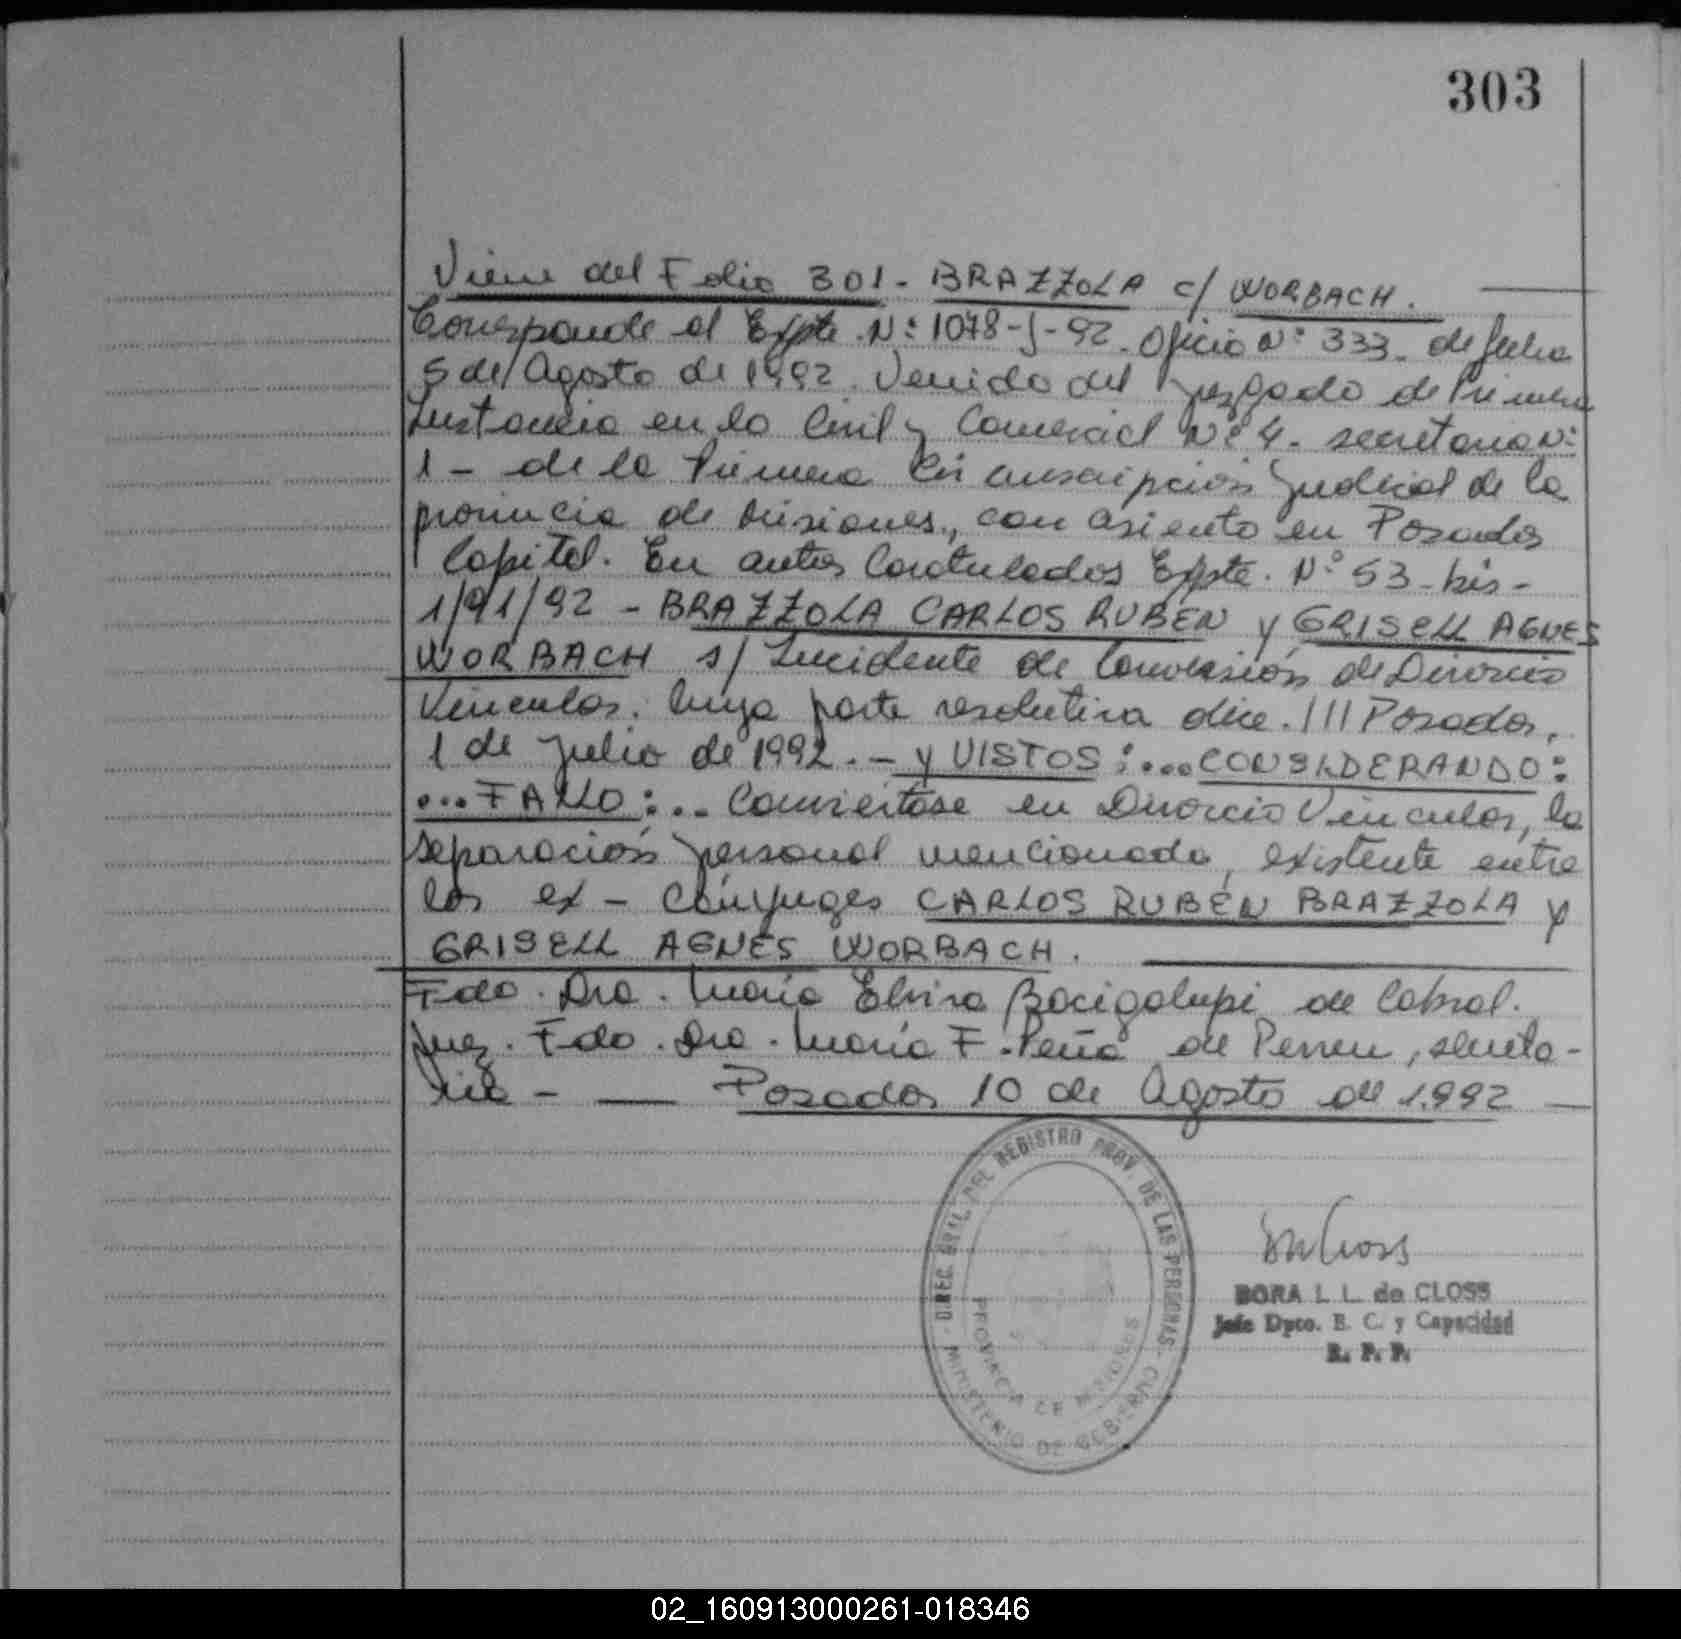 303
Viene del Folio 301 - BRAZZOLA c/ WORBACH.
Corresponde al Expte. Nº 1078-J-92. Oficio Nº 333. de fecha
5 de Agosto de 1992. Venido del Juzgado de Primera
Instancia en lo Civil y Comercial Nº 4. secretaria Nº
1 - de la Primera Circunscripción Judicial de la
provincia de Misiones, con asiento en Posadas
Capital. En autos Caratulados Expte. Nº 53-bis-
1/91/92 - BRAZZOLA CARLOS RUBEN y GRISELL AGNES
WORBACH s/ Incidente de Conversión de Divorcio
Vincular. Cuya parte resolutiva dice. /// Posadas,
1 de Julio de 1992. - y VISTOS:... CONSIDERANDO:
...FALLO:... Conviertase en Divorcio Vincular, la
separación personal mencionada, existente entre
los ex-Cónyuges CARLOS RUBÉN BRAZZOLA y
GRISELL AGNES WORBACH.
Fdo. Dra. María Elvira Bacigalupi de Cabral.
Juez. Fdo. Dra. María F. Peña de , secreta-
ria - Posadas 10 de Agosto de 1.992
DIREC. GRAL. DEL REGISTRO PROV. DE LAS PERSONAS
MINISTERIO DE GOBIERNO
PROVINCIA DE MISIONES
DORA L. L. de CLOSS
Jefe Dpto. E. C. y Capacidad
R. P. P.
02_160913000261-018346